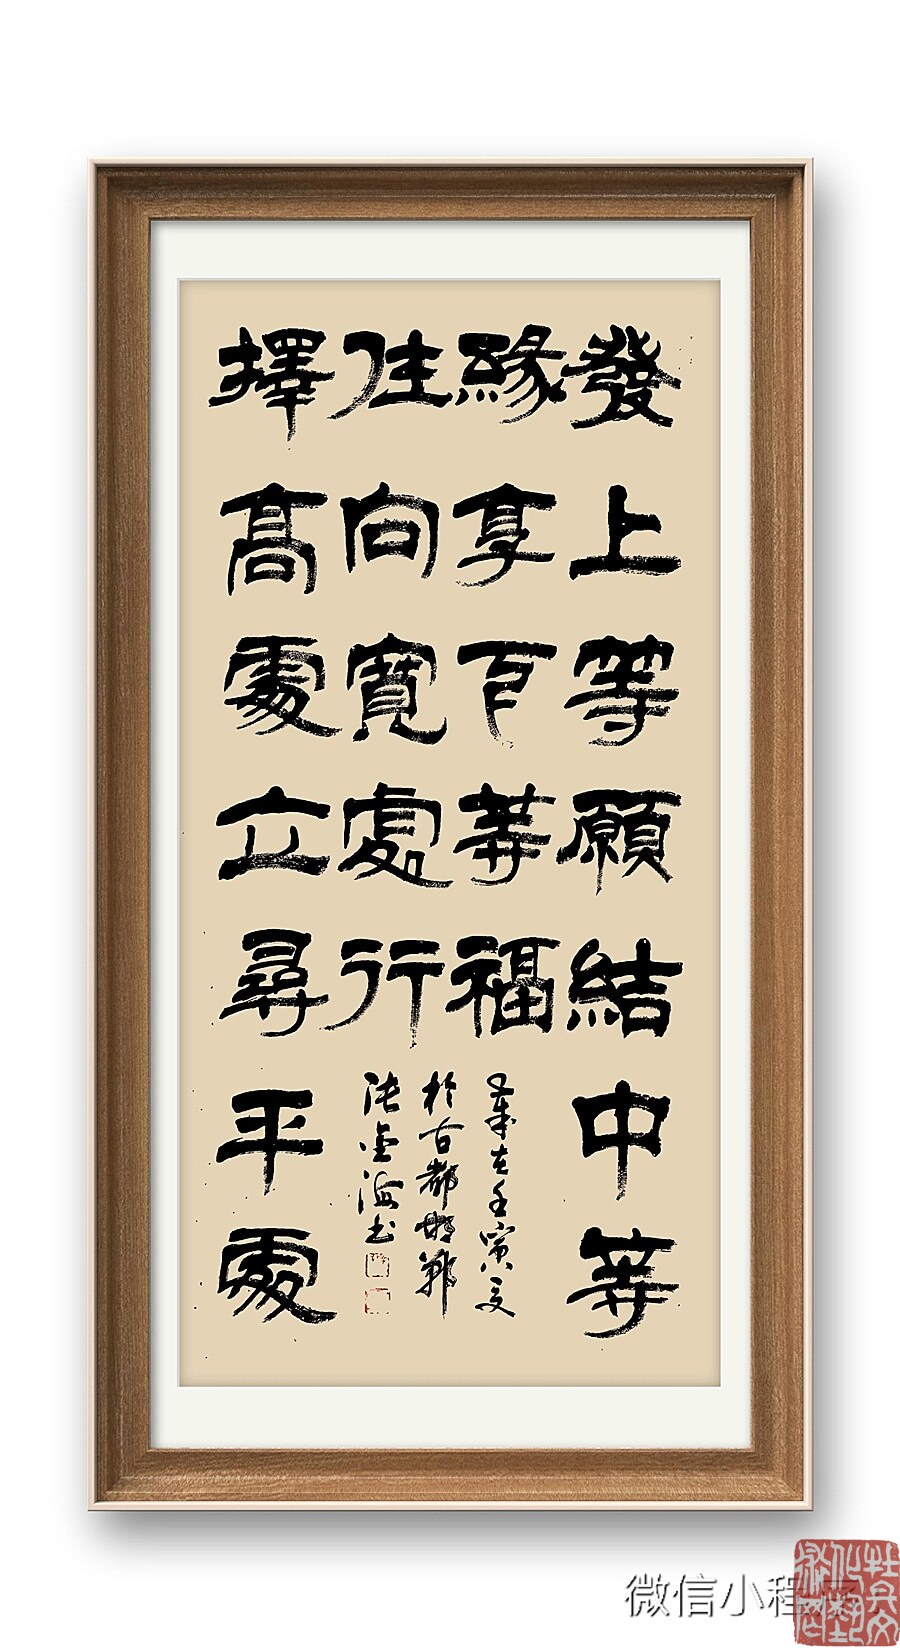 發上等願結中等
緣享下等福
擇高處立尋平處
住向寬處行
歲在壬寅夏
於古都邯鄲
張海书
微信小程